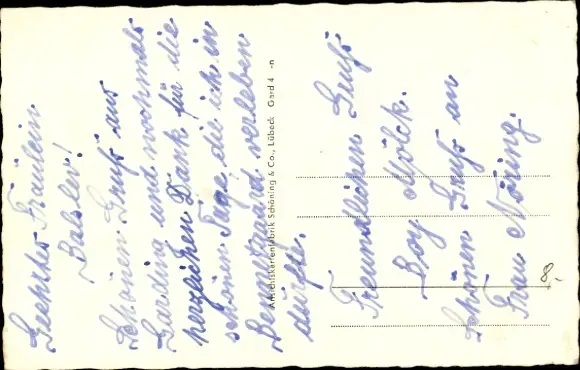 Geehrtes Fräulein
Balslev!
Schönen Gruß aus
Garding und nochmals
herzlichen Dank für die
schönen Tage die ich in
verleben
durfte.
Ansichtskartenfabrik Schöning & Co., Lübeck Gard 4 -n
Freundlichen Gruß
Boy Möck.
Schönen Gruß an
Frau Nöring.
8.-